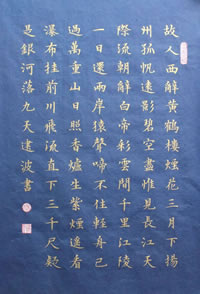 故人西辭黃鶴樓煙花三月下揚
州孤帆遠影碧空盡惟見長江天
際流朝辭白帝彩雲間千里江陵
一日還兩岸猿聲啼不住輕舟已
過萬重山日照香爐生紫煙遙看
瀑布挂前川飛流直下三千尺疑
是銀河落九天建波書